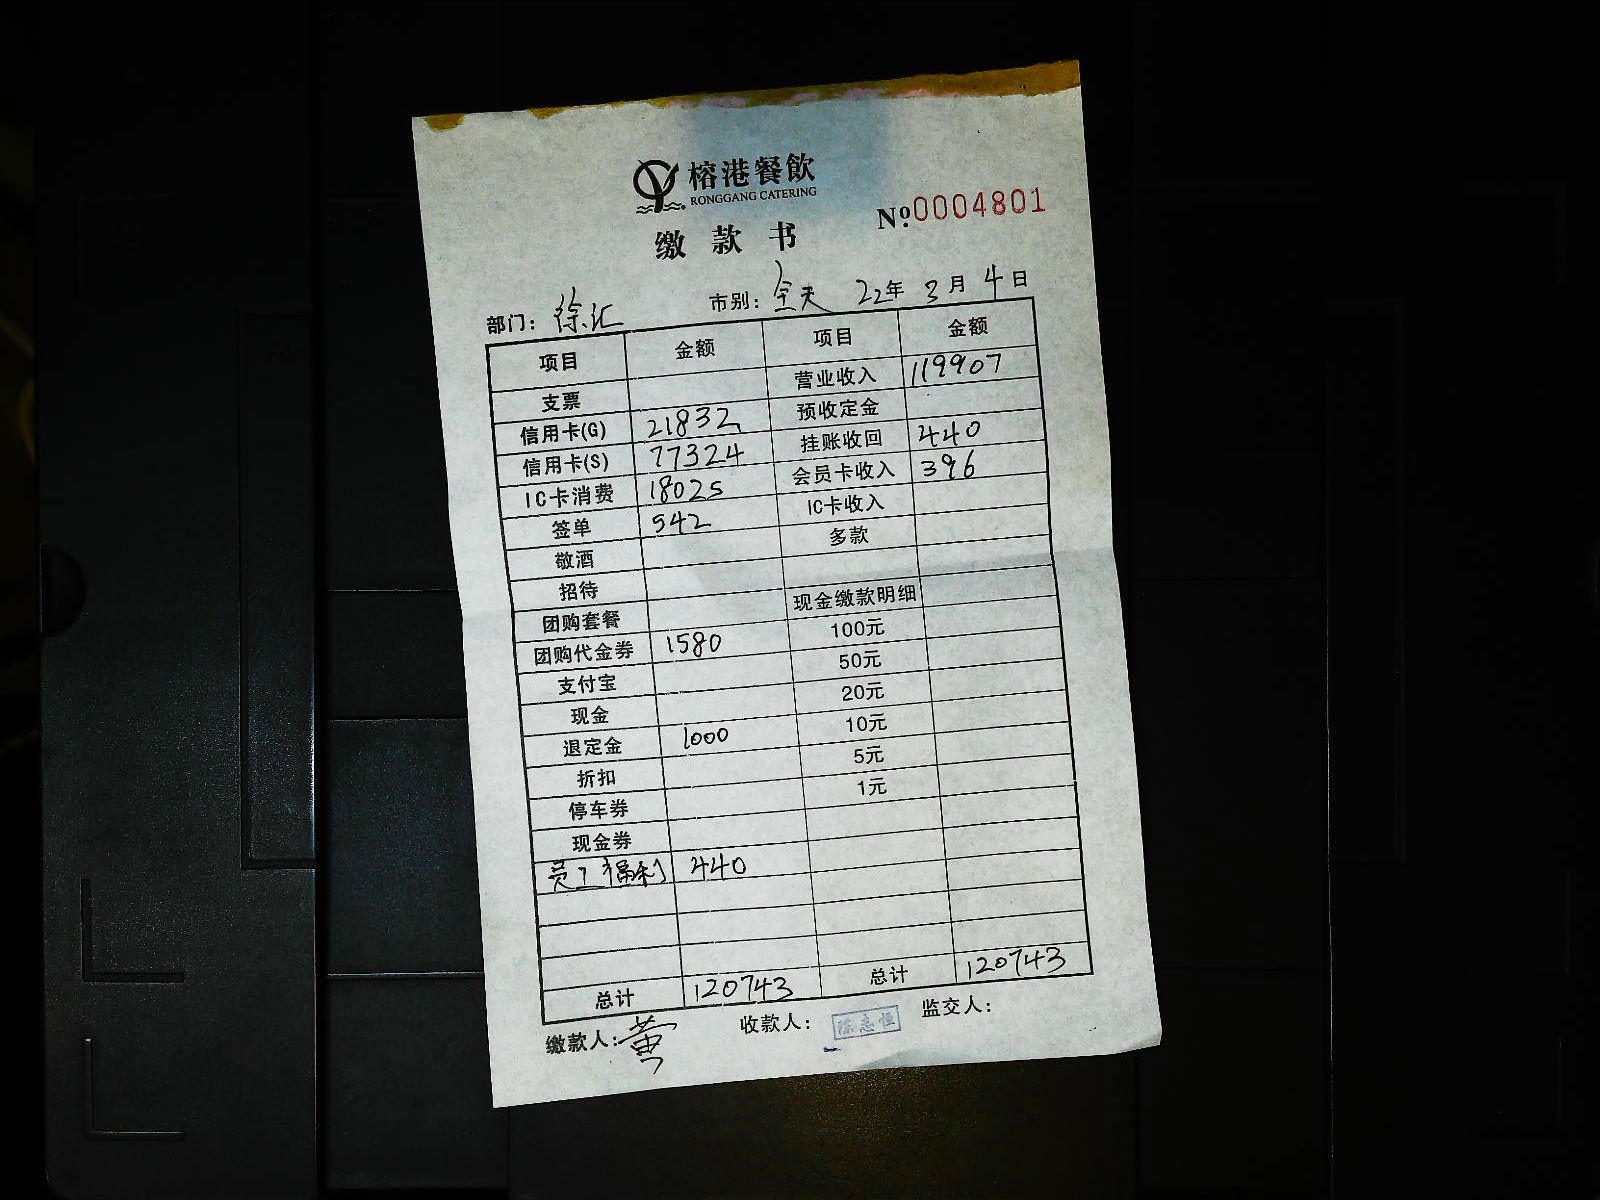 榕港餐飲
RONGGANG CATERING
缴款书
No:0004801
部门: 徐汇 市别: 全天 22年 3月 4日
项目 金额 项目 金额
支票 营业收入 119907
信用卡(G) 21832 预收定金
信用卡(S) 77324 挂账收回 440
IC卡消费 18025 会员卡收入 396
签单 542 IC卡收入
敬酒 多款
招待
团购套餐 现金缴款明细
团购代金券 1580 100元
支付宝 50元
现金 20元
退定金 1000 10元
折扣 5元
停车券 1元
现金券
员工福利 440
总计 120743 总计 120743
缴款人: 收款人: 陈志恒 监交人: